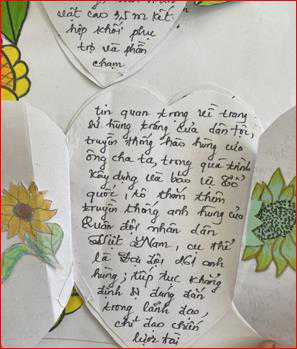 vất cao 32 m kết
hợp khối phục
trợ và phần
chạm
tin quan trọng về trang
sử hùng tráng của dân tộc,
truyền thống hào hùng của
ông cha ta, trong quá trình
xây dựng và bảo vệ Tổ
quốc, tô thắm thêm
truyền thống anh hùng của
Quân đội nhân dân
Việt Nam, cụ thể
là Bộ đội anh
hùng; tiếp tục khẳng
định sự đúng đắn
trong lãnh đạo,
chỉ đạo chiến
lược tài